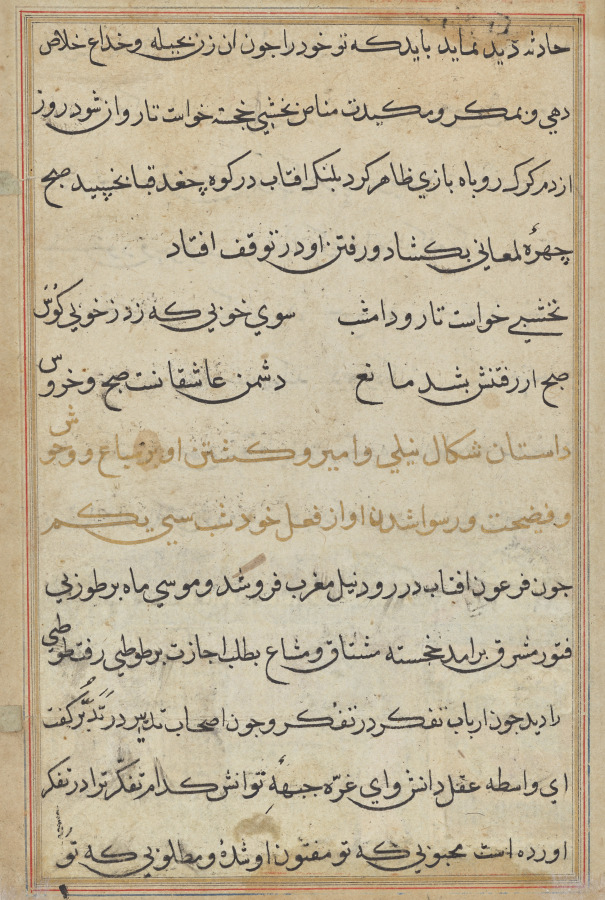 حادثه دید نماید باید که تو خود را جون ان زن بحیله و خداع خلاص
دهی و بمکر و مکیدت مناص نخشبی خجسته خواست تا روان شود روز
از دم کرک روباه بازی ظاهر کرد بلنک افتاب در کوه جغد قبا نخسپید صبح
چهرهٔ لمعانی بکشاد و رفتن او در توقف افتاد
نخشبی خواست تا رود امشب سوی خوبی که زد ز خوبی کوس
صبح از رفتنش بشد مانع دشمن عاشقانست صبح و خروس
داستان شکال نیلی و امیر و کشتن او بر سباع و وحوش
و فضیحت و رسوا شدن او از فعل خود شب سی یکم
جون فرعون افتاب در رود نیل مغرب فرو شد و موسی ماه بر طور بی
فتور مشرق برامد خجسته مشتاق و مشاع بطلب اجازت بر طوطی رفت طوطی
را دید جون ارباب تفکر در تفکر و جون اصحاب تدبیر در تَدَبُّر کفت
ای واسطه عقل دانش و ای غرّه جبههٔ توانش کدام تفکّر ترا در تفکر
اورده است محبوبی که تو مفتون او شدهٔ و مطلوبی که تو